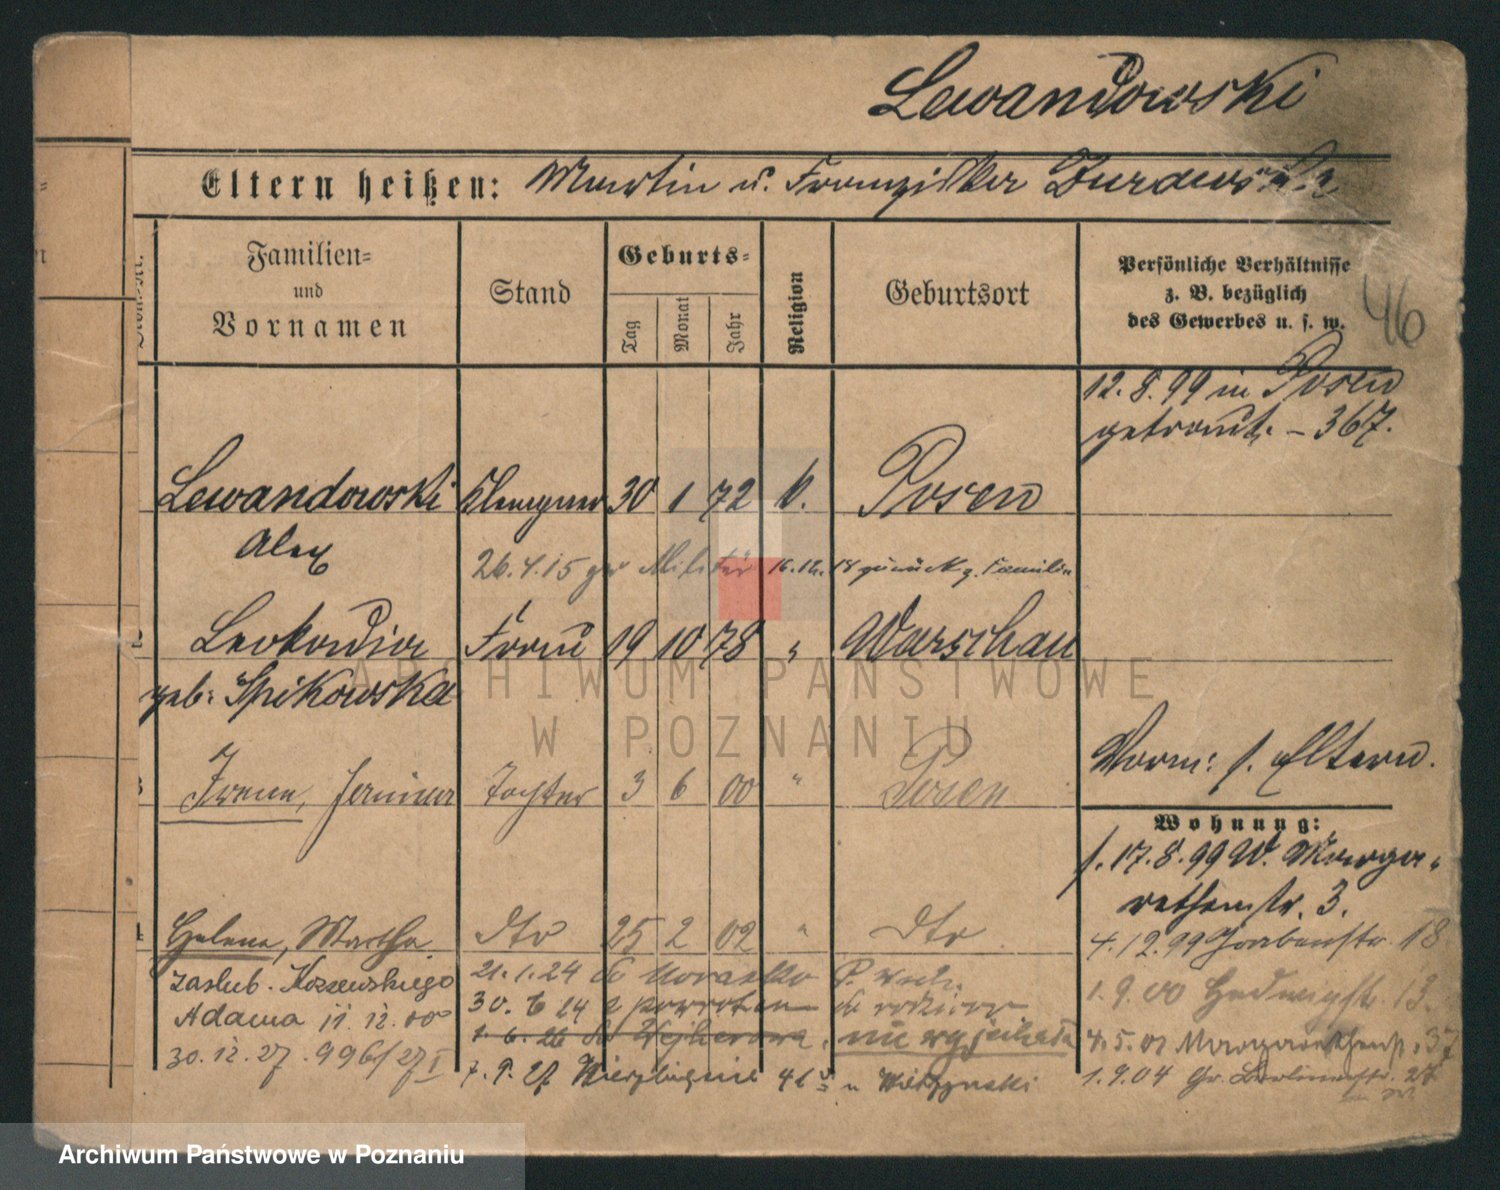 Lewandowski
Eltern heißen: Martin u. Franziska Zurawska
Familien= und Vornamen
Stand
Geburts=
Tag
Monat
Jahr
Religion
Geburtsort
Persönliche Verhältnisse
z. B. bezüglich
des Gewerbes u. s. w.
46
12. 8. 99 in Posen
getraut. – 367.
Lewandowski Klempner 30 1 72 k. Posen
Alex
26. 4. 15 zur Militär 16. 12. 18 zurück z. Familie
2 Leokadia Frau 19 10 78 " Warschau
geb: Spikowska
Vorm: s. Eltern.
3 Irene, Janina Tochter 3 6 00 " Posen
Wohnung:
s. 17. 8. 99 W. Marga-
rethenstr. 3.
4 Helena, Martha dto 25 2 02 " dto
4. 12. 99 Grabenstr. 18
zaślub. Kozewskiego
21. 1. 24 do Morasko P. Wsch.
1. 9. 00 Hedwigstr. 13.
Adama 11. 12. 00
30. 6. 24 z powrotem do rodziców
4. 5. 01 Margarethenst. 37
30. 12. 27. 996/27 I
1. 6. 26 do Wejherowa. nie wyjechała
1. 9. 04 Gr. Berlinerstr. 27
7. 9. 27 Wierzbięcice 46 u
ARCHIWUM PAŃSTWOWE
W POZNANIU
Archiwum Państwowe w Poznaniu